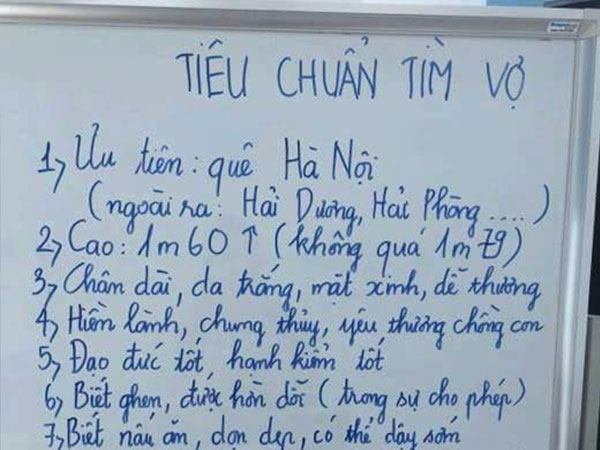 TIÊU CHUẨN TÌM VỢ
1, Ưu tiên: quê Hà Nội
(ngoài ra: Hải Dương, Hải Phòng ....)
2, Cao: 1m60 ↑ (không quá 1m79)
3, Chân dài, da trắng, mặt xinh, dễ thương
4, Hiền lành, chung thủy, yêu thương chồng con
5, Đạo đức tốt, hạnh kiểm tốt
6, Biết ghen, được hờn dỗi (trong sự cho phép)
7, Biết nấu ăn, dọn dẹp, có thể dậy sớm